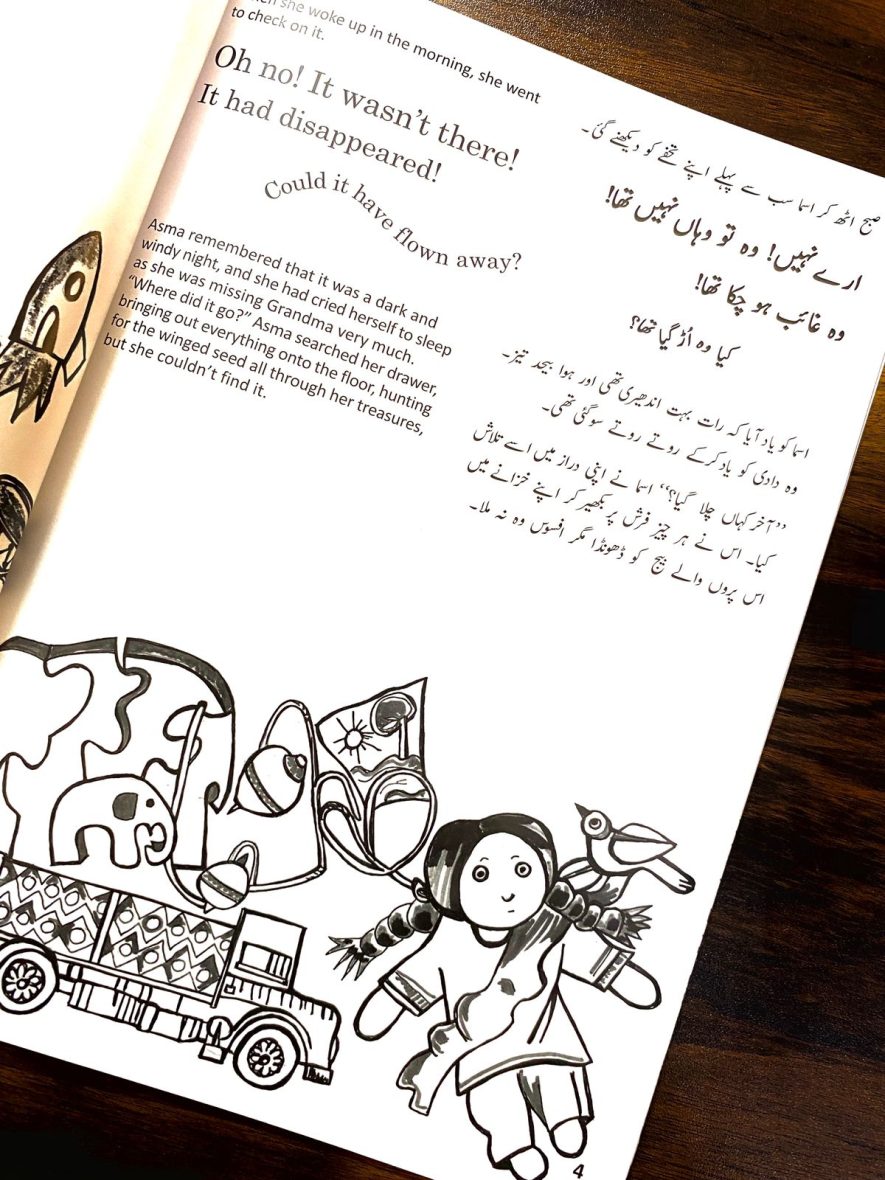 she woke up in the morning, she went
to check on it.
Oh no! It wasn't there!
It had disappeared!
Could it have flown away?
Asma remembered that it was a dark and
windy night, and she had cried herself to sleep
as she was missing Grandma very much.
“Where did it go?” Asma searched her drawer,
bringing out everything onto the floor, hunting
for the winged seed all through her treasures,
but she couldn't find it.
صبح اٹھ کر اسما سب سے پہلے اپنے تحفے کو دیکھنے گئی۔
ارے نہیں! وہ تو وہاں نہیں تھا!
وہ غائب ہو چکا تھا!
کیا وہ اُڑ گیا تھا؟
اسما کو یاد آیا کہ رات بہت اندھیری تھی اور ہوا بیحد تیز۔
وہ دادی کو یاد کرکے روتے روتے سو گئی تھی۔
’’آخر کہاں چلا گیا؟‘‘ اسما نے اپنی دراز میں اسے تلاش
کیا۔ اس نے ہر چیز فرش پر بکھیر کر اپنے خزانے میں
اس پروں والے بیج کو ڈھونڈا مگر افسوس وہ نہ ملا۔
4